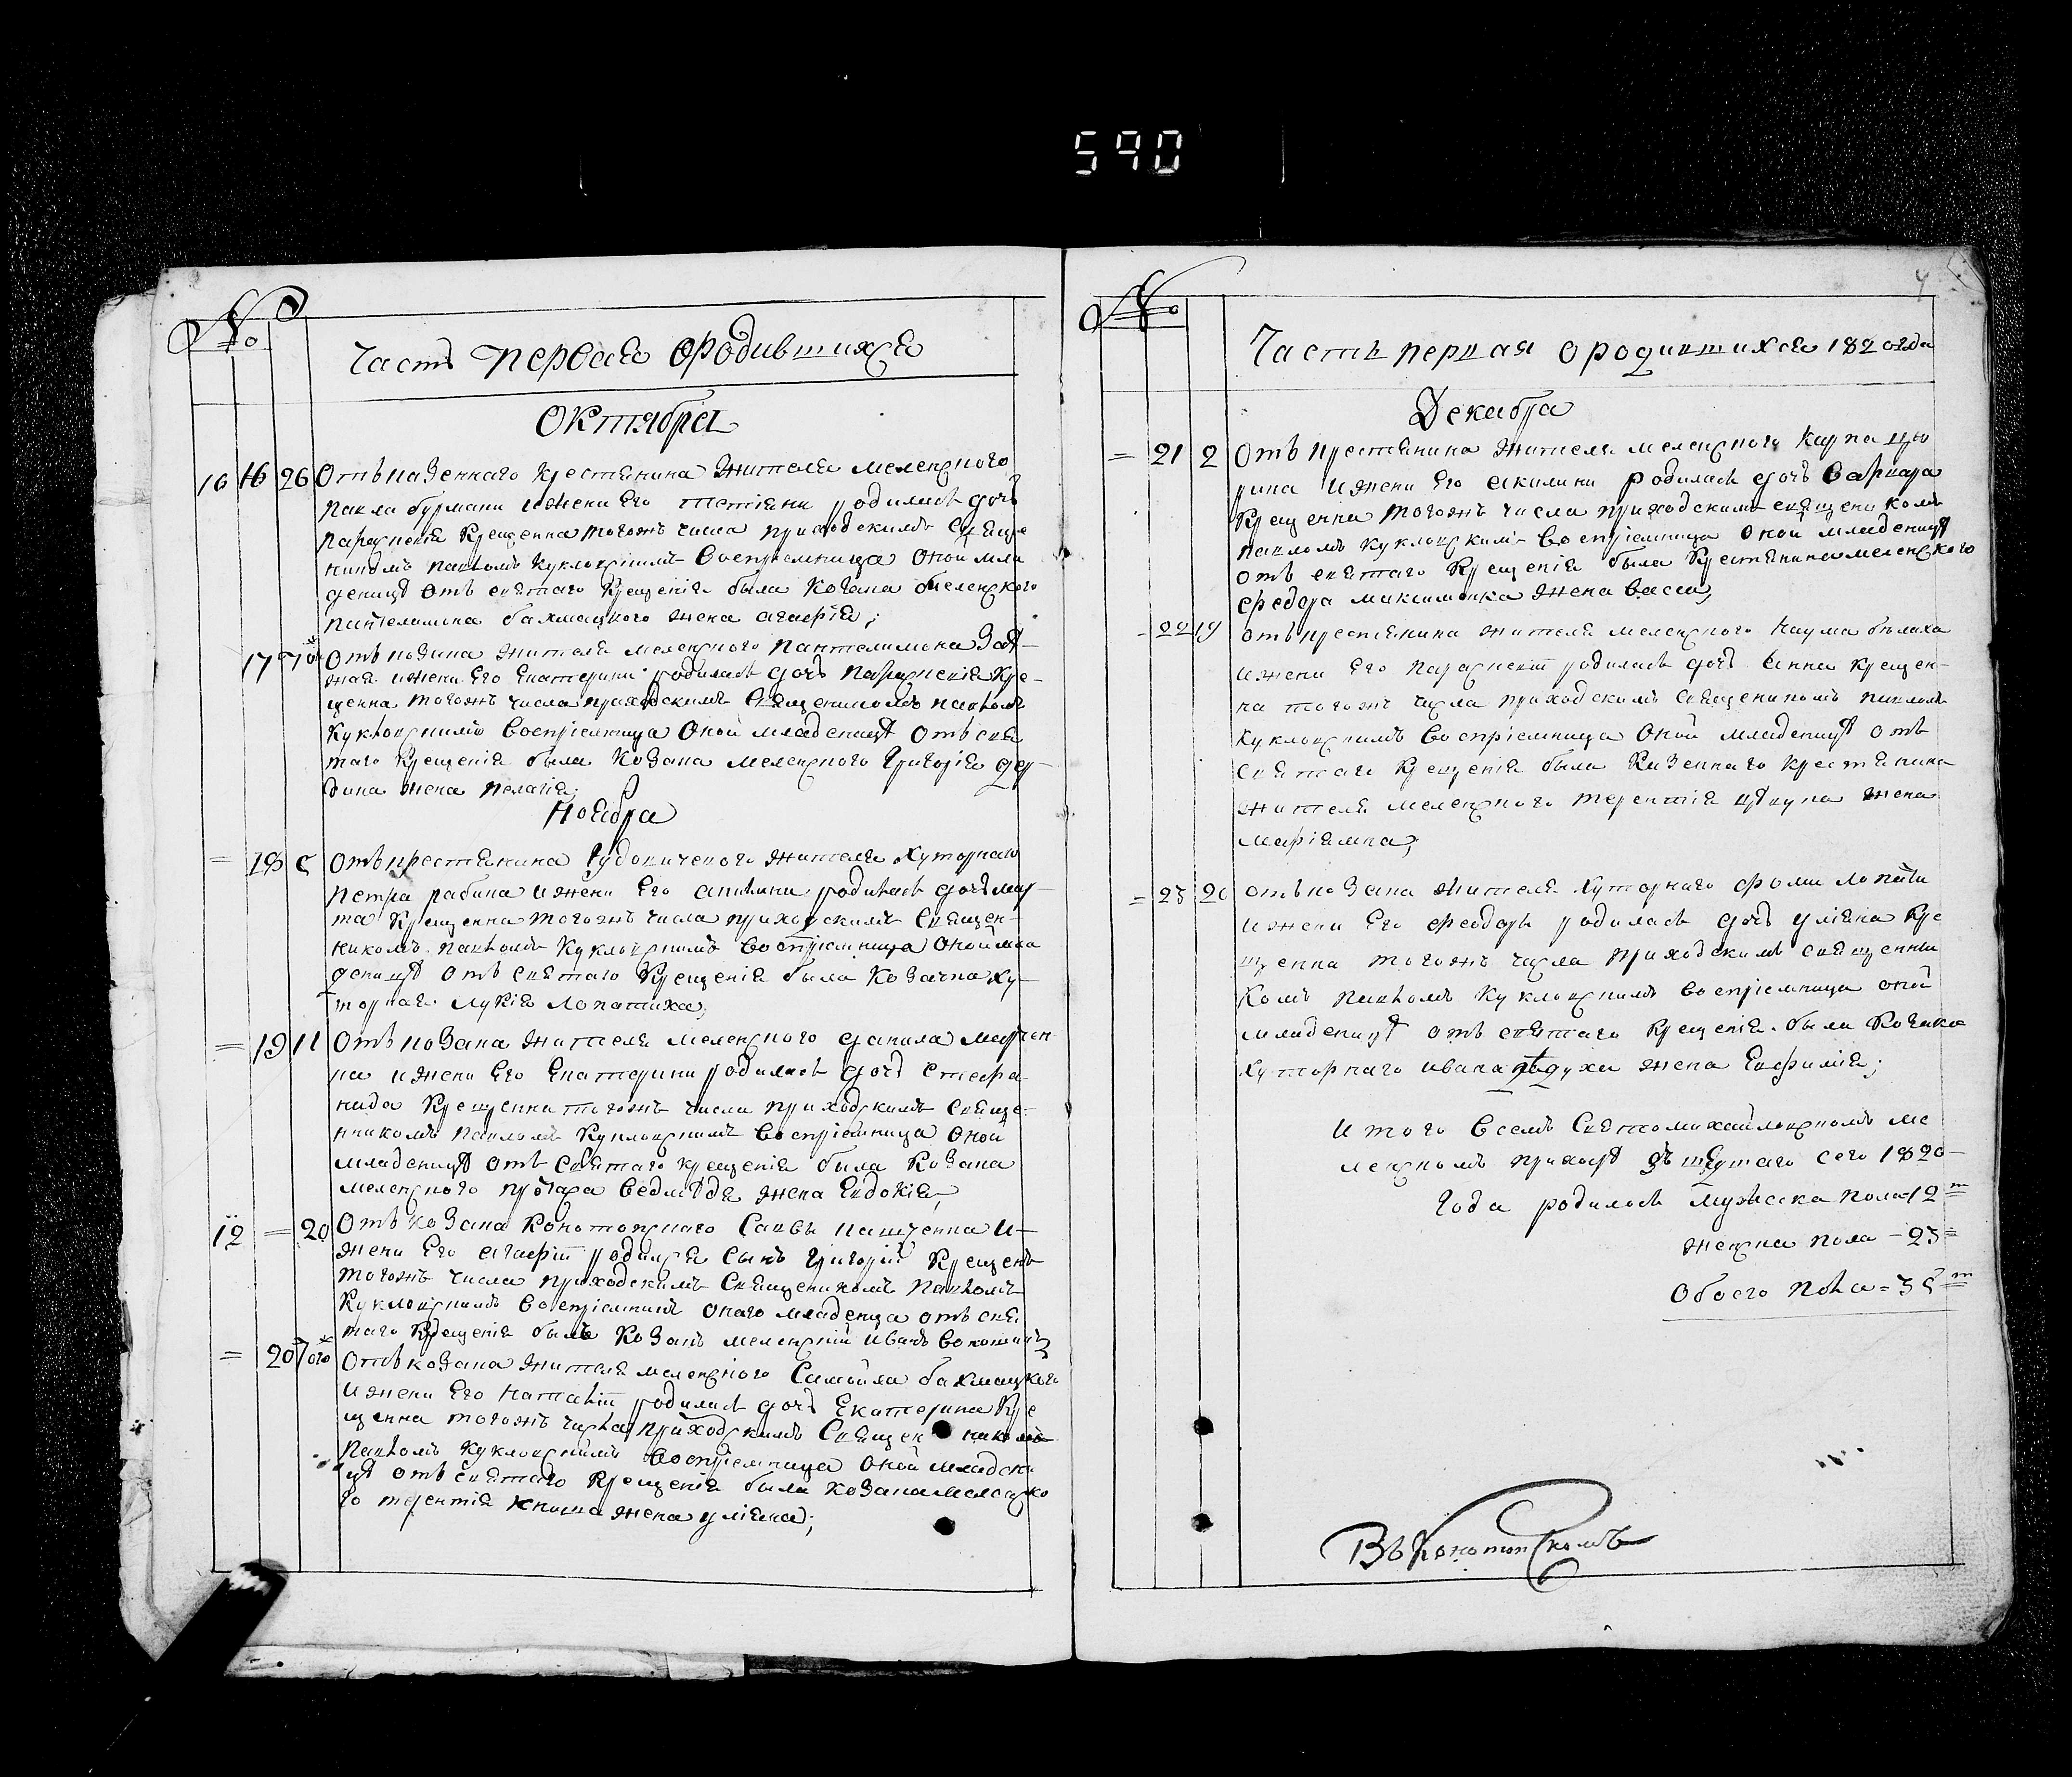 590
№
Часть первая о родившихся
Октября
16 16 26 Отъ казенного крестянина жителя меленского
павла бурмаки и жени его тетяни родилась дочь
параскевія крещенна тогожъ числа приходскимъ свяще
никомъ павломъ Кукловскимъ воспріемница оной мла
деницѣ отъ святаго крещенія была козака меленского
пантелимона бахмацкого жена агафія;
17 тогож Отъ козака жителя меленского пантелимона
и жени его Екатерини родилась дочь параскевія кре-
щенна тогожъ числа приходскимъ священикомъ павломъ
Кукловскимъ воспріемница оной младеницѣ отъ свя
таго крещенія была козака меленского Григорія
жена пелагія;
Ноября
= 18 5 Отъ крестянина жителя хуторнаго
петра рабика и жени его родилась дочь мар
та крещенна тогожъ числа приходскимъ священ-
никомъ павломъ Кукловскимъ воспріемница оной мла
деницѣ отъ святаго крещенія была козачка ху-
торная лукія лопатиха;
= 19 11 Отъ козака жителя меленского данила марчен
ка и жени его Екатерини родилась дочь стефа
нида крещенна тогожъ числа приходскимъ свяще-
нникомъ павломъ Кукловскимъ воспріемница оной
младеницѣ отъ святаго крещенія была козака
меленского ведмѣдя жена Евдокія;
12 = 20 Отъ козака конотопского Савы пащенка и
жени его агафіи родился сынъ григорій крещенъ
тогожъ числа приходскимъ священикомъ павломъ
Кукловскимъ воспріемникъ онаго младенца отъ свя
таго крещенія былъ козакъ меленскій иванъ
= 20 тогож Отъ козака жителя меленского Самойла бахмацкого
и жени его наталіи родилась дочь Екатерина кре
щенна тогожъ числа приходскимъ священникомъ
павломъ Кукловскимъ воспріемница оной младени
цѣ отъ святаго крещенія была козака меленско
го терентія жена уліяна;
4
№
Часть первая о родившихся 1820 года
Декабря
= 21 2 Отъ крестянина жителя меленского карпа
и жени его акилини родилась дочь Варвара
крещенна тогожъ числа приходскимъ священикомъ
павломъ кукловскимъ воспріемница оной младеницѣ
отъ святаго крещенія была крестянина меленского
федора максименка жена васса;
= 22 19 Отъ крестянина жителя меленского наума бѣлаха
и жени его параскевіи родилась дочь анна крещен-
на тогожъ числа приходскимъ священикомъ павломъ
кукловскимъ воспріемница оной младеницѣ отъ
святаго крещенія была казенного крестянина
жителя меленского терентія жена
маріямна;
= 23 26 Отъ козака жителя хуторного фоми лопати
и жени его феодори родилась дочь уліяна кре
щенна тогожъ числа приходскимъ священни
комъ павломъ кукловскимъ воспріемница оной
младеницѣ отъ святаго крещенія была козака
хуторнаго ивана жена Евфимія;
Итого всемъ Святомихайловскомъ ме
ленскомъ приходѣ сего 1820
года родилось мужеска пола 12
женска пола - 23
Обоего пола = 35
Въ Конотопскомъ